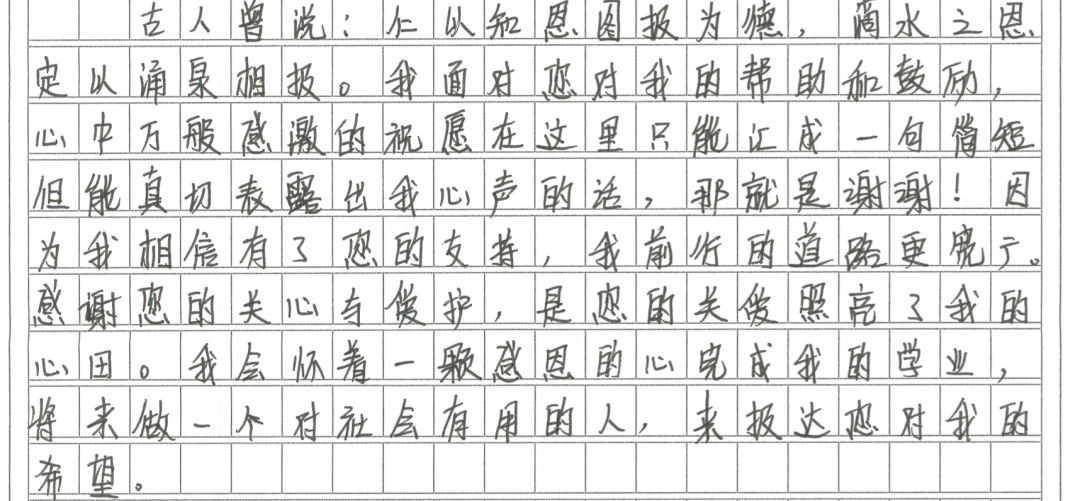 古人曾说：仁以知恩图报为德，滴水之恩
定以涌泉相报。我面对您对我的帮助和鼓励，
心中万般感激的祝愿在这里只能汇成一句简短
但能真切表露出我心声的话，那就是谢谢！因
为我相信有了您的支持，我前行的道路更宽广。
感谢您的关心与爱护，是您的关爱照亮了我的
心田。我会怀着一颗感恩的心完成我的学业，
将来做一个对社会有用的人，来报达您对我的
希望。